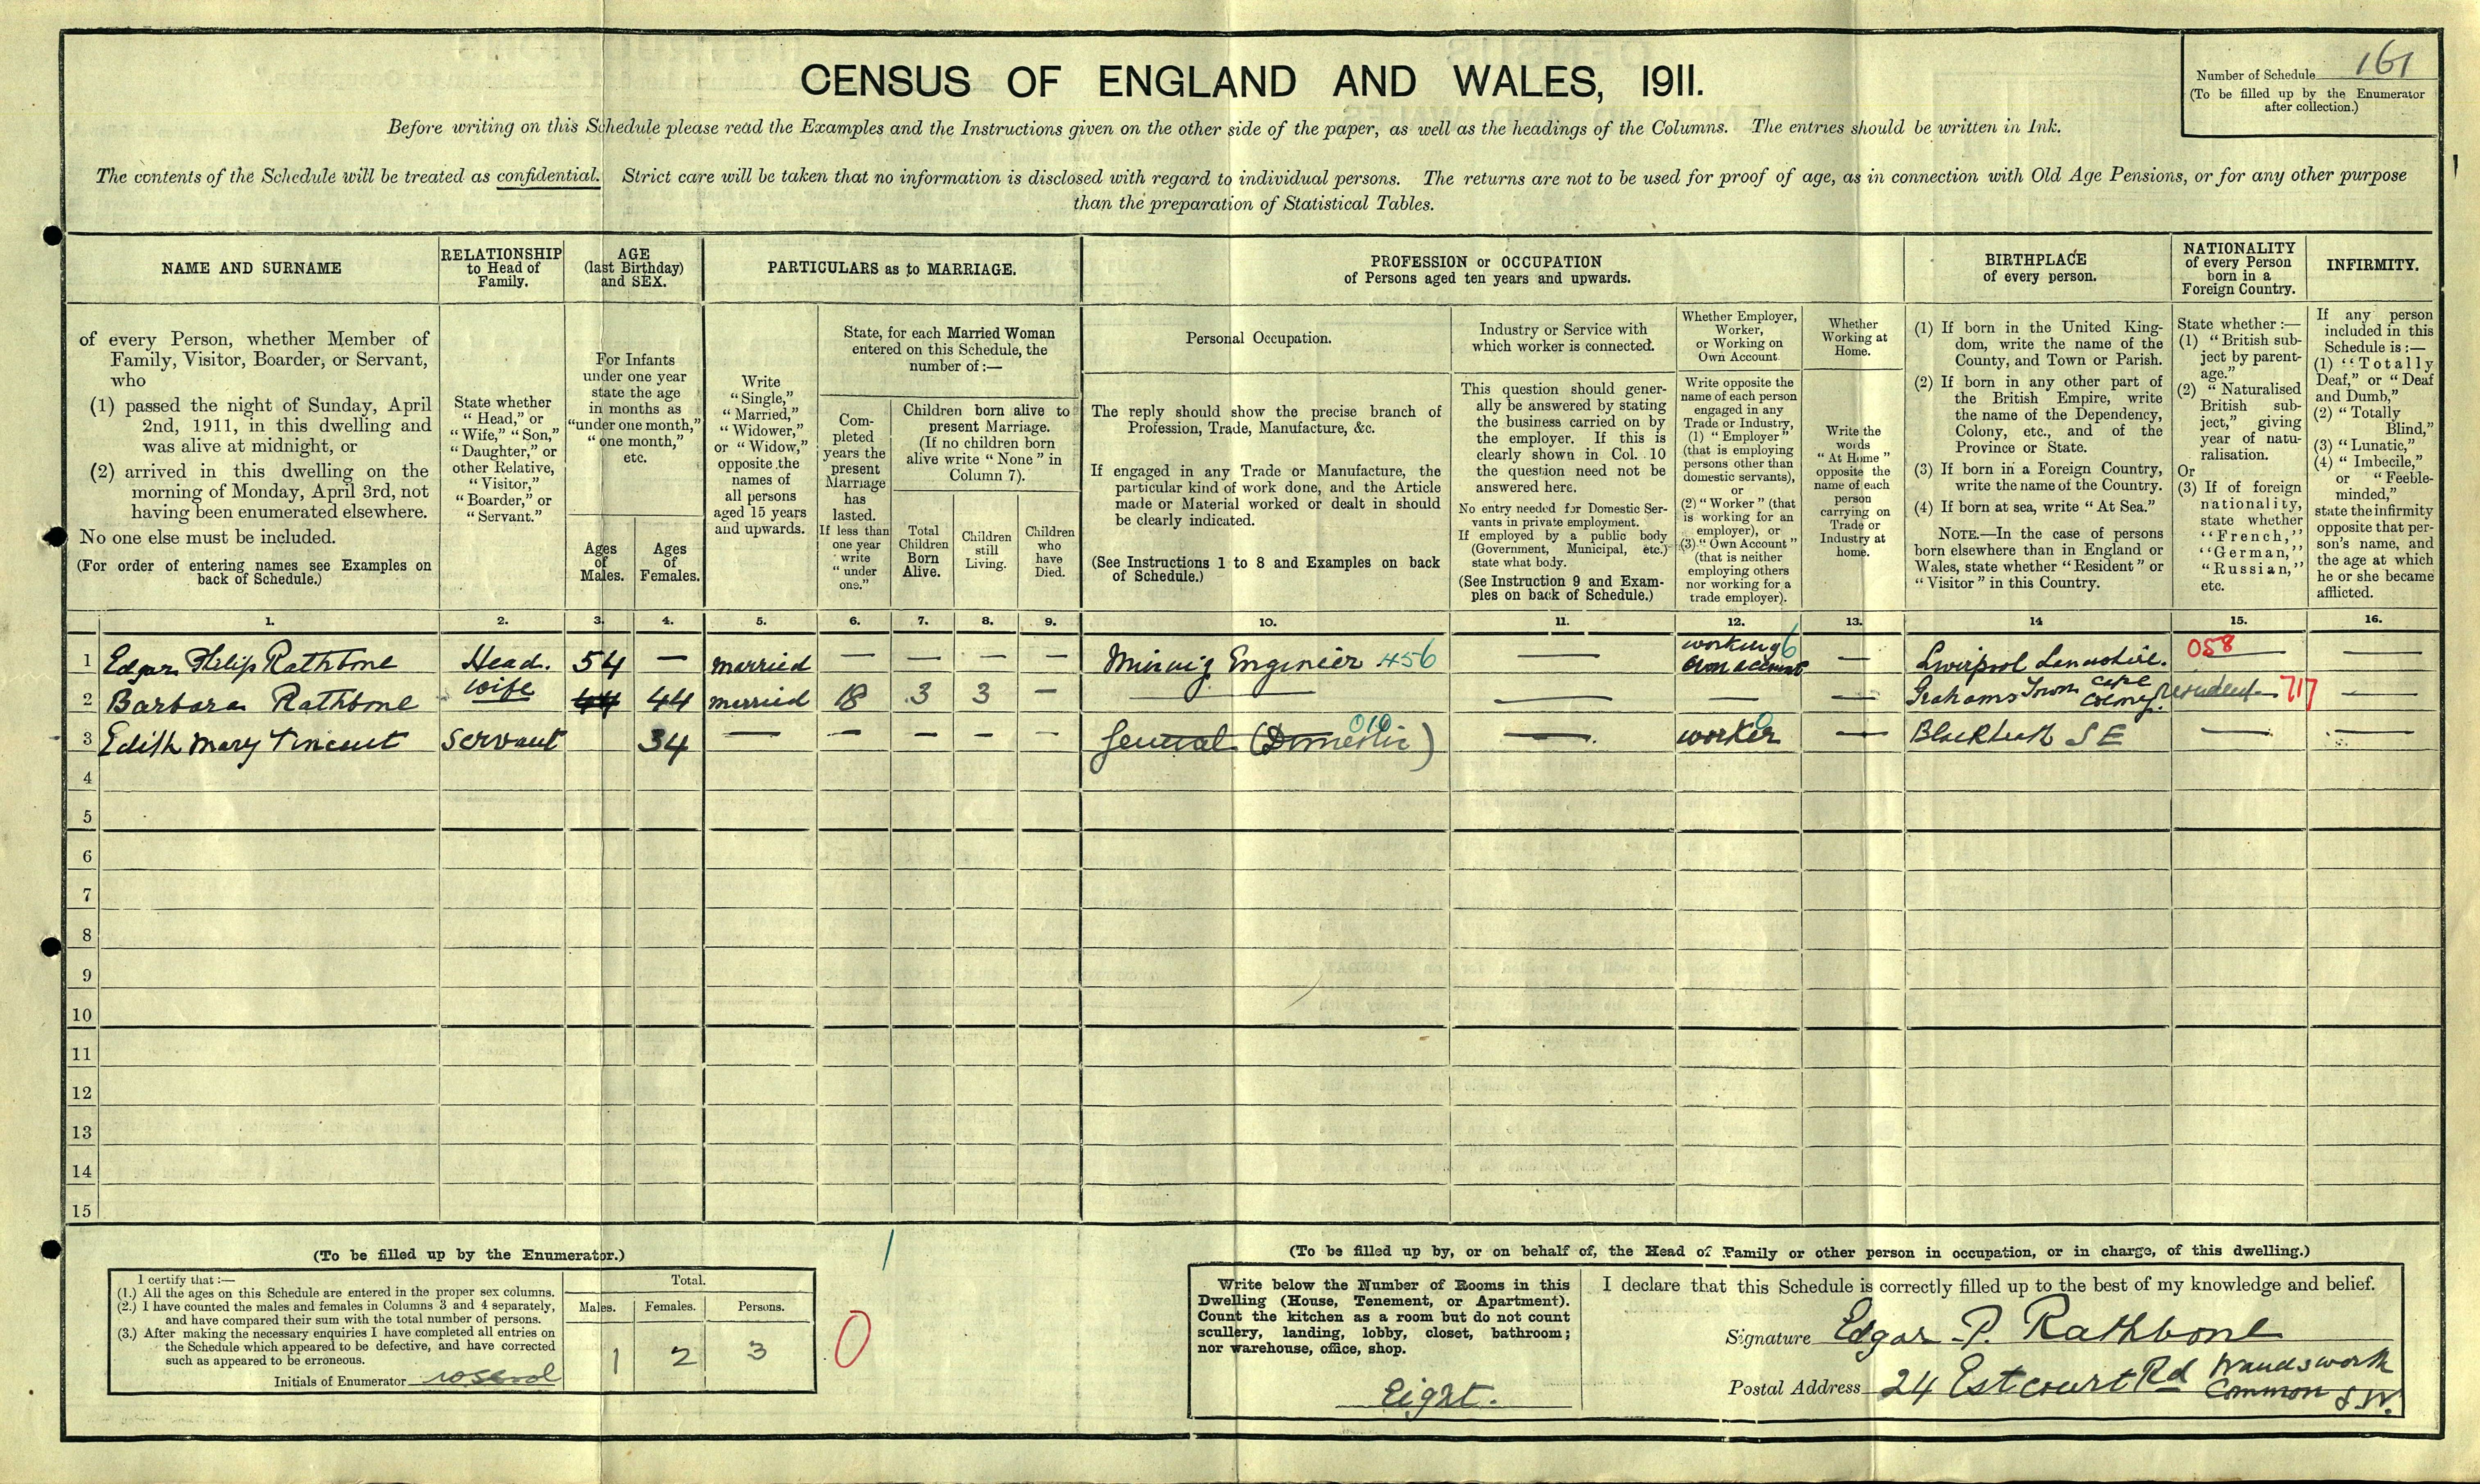 CENSUS OF ENGLAND AND WALES, 1911.
Number of Schedule 161
(To be filled up by the Enumerator
after collection.)
Before writing on this Schedule please read the Examples and the Instructions given on the other side of the paper, as well as the headings of the Columns. The entries should be written in Ink.
The contents of the Schedule will be treated as confidential. Strict care will be taken that no information is disclosed with regard to individual persons. The returns are not to be used for proof of age, as in connection with Old Age Pensions, or for any other purpose
than the preparation of Statistical Tables.
NAME AND SURNAME
of every Person, whether Member of
Family, Visitor, Boarder, or Servant,
who
(1) passed the night of Sunday, April
2nd, 1911, in this dwelling and
was alive at midnight, or
(2) arrived in this dwelling on the
morning of Monday, April 3rd, not
having been enumerated elsewhere.
No one else must be included.
(For order of entering names see Examples on
back of Schedule.)
RELATIONSHIP
to Head of
Family.
State whether
"Head," or
"Wife," "Son,"
"Daughter," or
other Relative,
"Visitor,"
"Boarder," or
"Servant."
AGE
(last Birthday)
and SEX.
For Infants
under one year
state the age
in months as
"under one month,"
"one month,"
etc.
Ages
of
Males.
Ages
of
Females.
PARTICULARS as to MARRIAGE.
Write
"Single,"
"Married,"
"Widower,"
or "Widow,"
opposite the
names of
all persons
aged 15 years
and upwards.
State, for each Married Woman
entered on this Schedule, the
number of:—
Com-
pleted
years the
present
Marriage
has
lasted.
If less than
one year
write
"under
one."
Children born alive to
present Marriage.
(If no children born
alive write "None" in
Column 7).
Total
Children
Born
Alive.
Children
still
Living.
Children
who
have
Died.
PROFESSION or OCCUPATION
of Persons aged ten years and upwards.
Personal Occupation.
The reply should show the precise branch of
Profession, Trade, Manufacture, &c.
If engaged in any Trade or Manufacture, the
particular kind of work done, and the Article
made or Material worked or dealt in should
be clearly indicated.
(See Instructions 1 to 8 and Examples on back
of Schedule.)
Industry or Service with
which worker is connected.
This question should gener-
ally be answered by stating
the business carried on by
the employer. If this is
clearly shown in Col. 10
the question need not be
answered here.
No entry needed for Domestic Ser-
vants in private employment.
If employed by a public body
(Government, Municipal, etc.)
state what body.
(See Instruction 9 and Exam-
ples on back of Schedule.)
Whether Employer,
Worker,
or Working on
Own Account
Write opposite the
name of each person
engaged in any
Trade or Industry,
(1) "Employer"
(that is employing
persons other than
domestic servants),
or
(2) "Worker" (that
is working for an
employer), or
(3) "Own Account"
(that is neither
employing others
nor working for a
trade employer).
Whether
Working at
Home.
Write the
words
"At Home"
opposite the
name of each
person
carrying on
Trade or
Industry at
home.
BIRTHPLACE
of every person.
(1) If born in the United King-
dom, write the name of the
County, and Town or Parish.
(2) If born in any other part of
the British Empire, write
the name of the Dependency,
Colony, etc., and of the
Province or State.
(3) If born in a Foreign Country,
write the name of the Country.
(4) If born at sea, write "At Sea."
NOTE.—In the case of persons
born elsewhere than in England or
Wales, state whether "Resident" or
"Visitor" in this Country.
NATIONALITY
of every Person
born in a
Foreign Country.
State whether:—
(1) "British sub-
ject by parent-
age."
(2) "Naturalised
British sub-
ject," giving
year of natu-
ralisation.
Or
(3) If of foreign
nationality,
state whether
"French,"
"German,"
"Russian,"
etc.
INFIRMITY.
If any person
included in this
Schedule is:—
(1) "Totally
Deaf," or "Deaf
and Dumb,"
(2) "Totally
Blind,"
(3) "Lunatic,"
(4) "Imbecile,"
or "Feeble-
minded,"
state the infirmity
opposite that per-
son's name, and
the age at which
he or she became
afflicted.
1. 2. 3. 4. 5. 6. 7. 8. 9. 10. 11. 12. 13. 14 15. 16.
1 Edgar Philip Rathbone Head. 54 — married — — — — Mining Engineer 456 — working own account 6 — Liverpool Lancashire. 058 — —
2 Barbara Rathbone wife 44 44 married 18 3 3 — — — — — Grahams Town Cape Colony. resident 717 —
3 Edith Mary Vincent Servant 34 — — — — — General (Domestic) 010 — worker 0 — Blackheath S E — —
4
5
6
7
8
9
10
11
12
13
14
15
(To be filled up by the Enumerator.)
I certify that:—
(1.) All the ages on this Schedule are entered in the proper sex columns.
(2.) I have counted the males and females in Columns 3 and 4 separately,
and have compared their sum with the total number of persons.
(3.) After making the necessary enquiries I have completed all entries on
the Schedule which appeared to be defective, and have corrected
such as appeared to be erroneous.
Initials of Enumerator
Total.
Males. Females. Persons.
1 2 3
0
(To be filled up by, or on behalf of, the Head of Family or other person in occupation, or in charge, of this dwelling.)
Write below the Number of Rooms in this
Dwelling (House, Tenement, or Apartment).
Count the kitchen as a room but do not count
scullery, landing, lobby, closet, bathroom;
nor warehouse, office, shop.
Eight.
I declare that this Schedule is correctly filled up to the best of my knowledge and belief.
Signature Edgar P. Rathbone
Postal Address 24 Estcourt Rd Wandsworth
Common S.W.